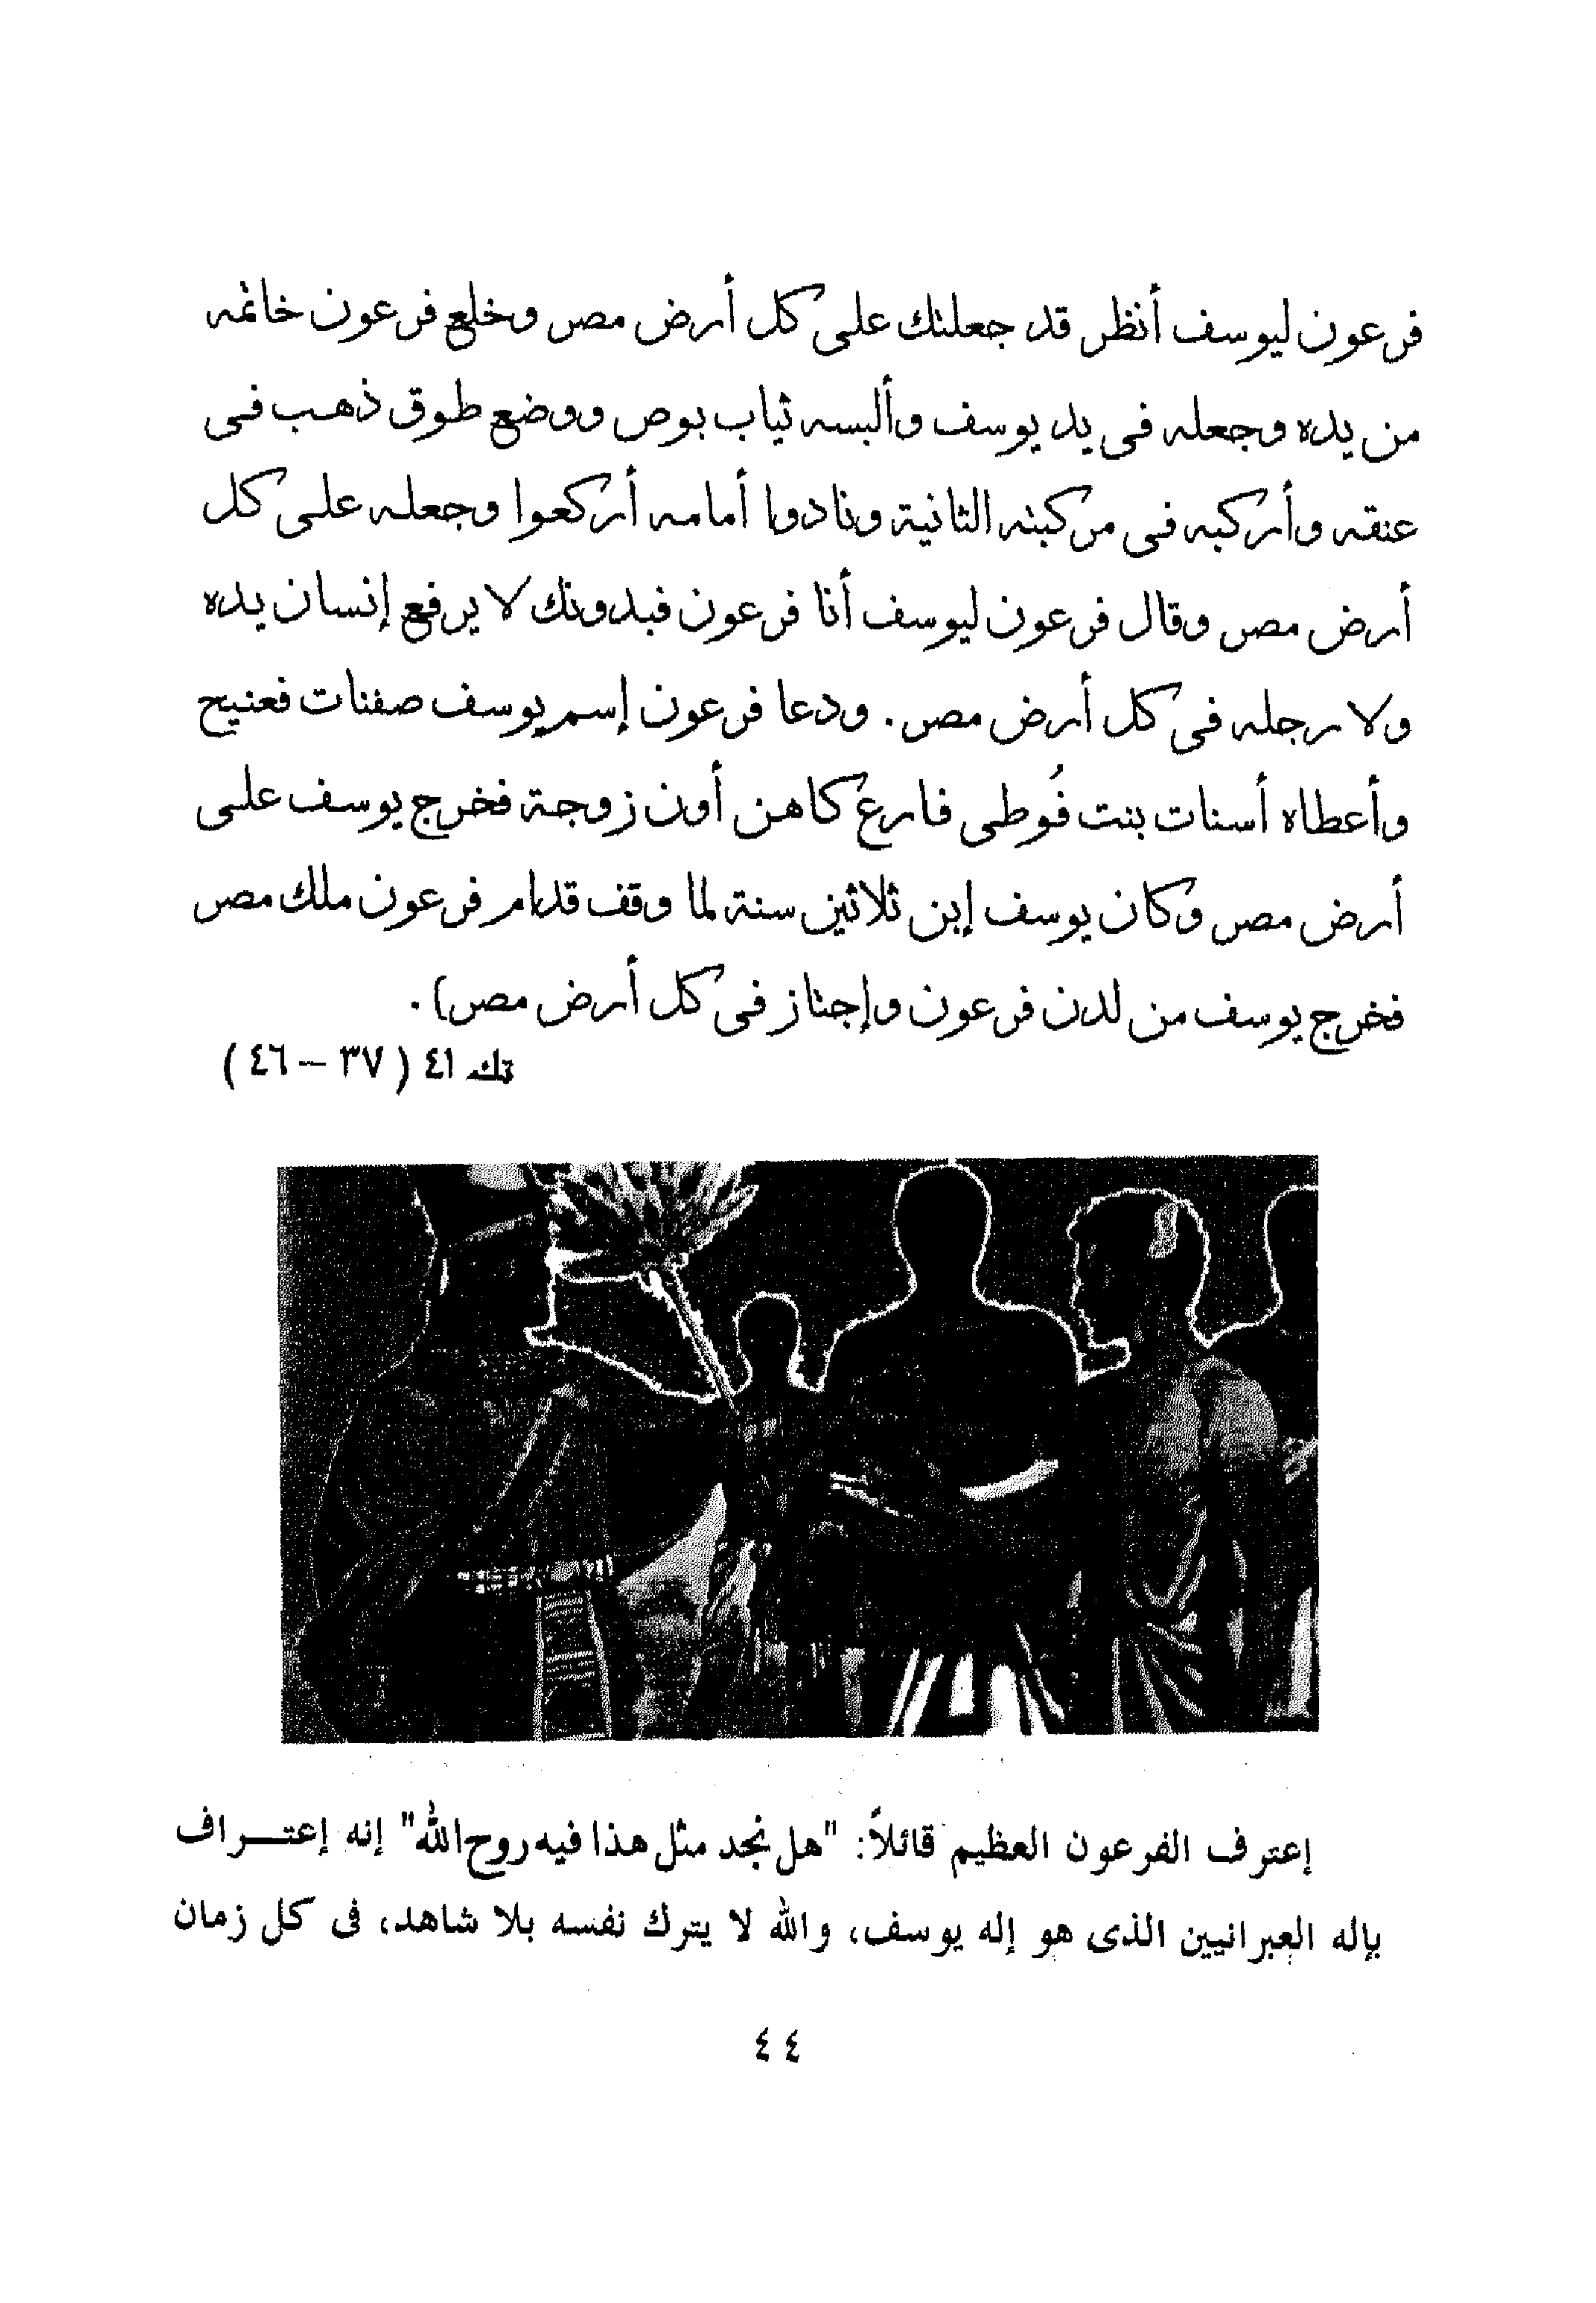 فرعون ليوسف أنظر قد جعلتك على كل أرض مصر وخلع فرعون خاتمه
من يده وجعله فى يد يوسف وألبسه ثياب بوص ووضع طوق ذهب فى
عنقه وأركبه فى مركبته الثانية ونادوا أمامه أركعوا وجعله على كل
أرض مصر وقال فرعون ليوسف أنا فرعون فبدونك لا يرفع إنسان يده
ولا رجله فى كل أرض مصر. ودعا فرعون إسم يوسف صفنات فعنيح
وأعطاه أسنات بنت فُوطى فارع كاهن أون زوجة فخرج يوسف على
أرض مصر وكان يوسف إبن ثلاثين سنة لما وقف قدام فرعون ملك مصر
فخرج يوسف من لدن فرعون وإجتاز فى كل أرض مصر).
تك ٤١ (٣٧ – ٤٦)
إعترف الفرعون العظيم قائلاً: "هل نجد مثل هذا فيه روح الله" إنه إعتـــراف
بإله العبرانيين الذى هو إله يوسف، والله لا يترك نفسه بلا شاهد، فى كل زمان
٤٤